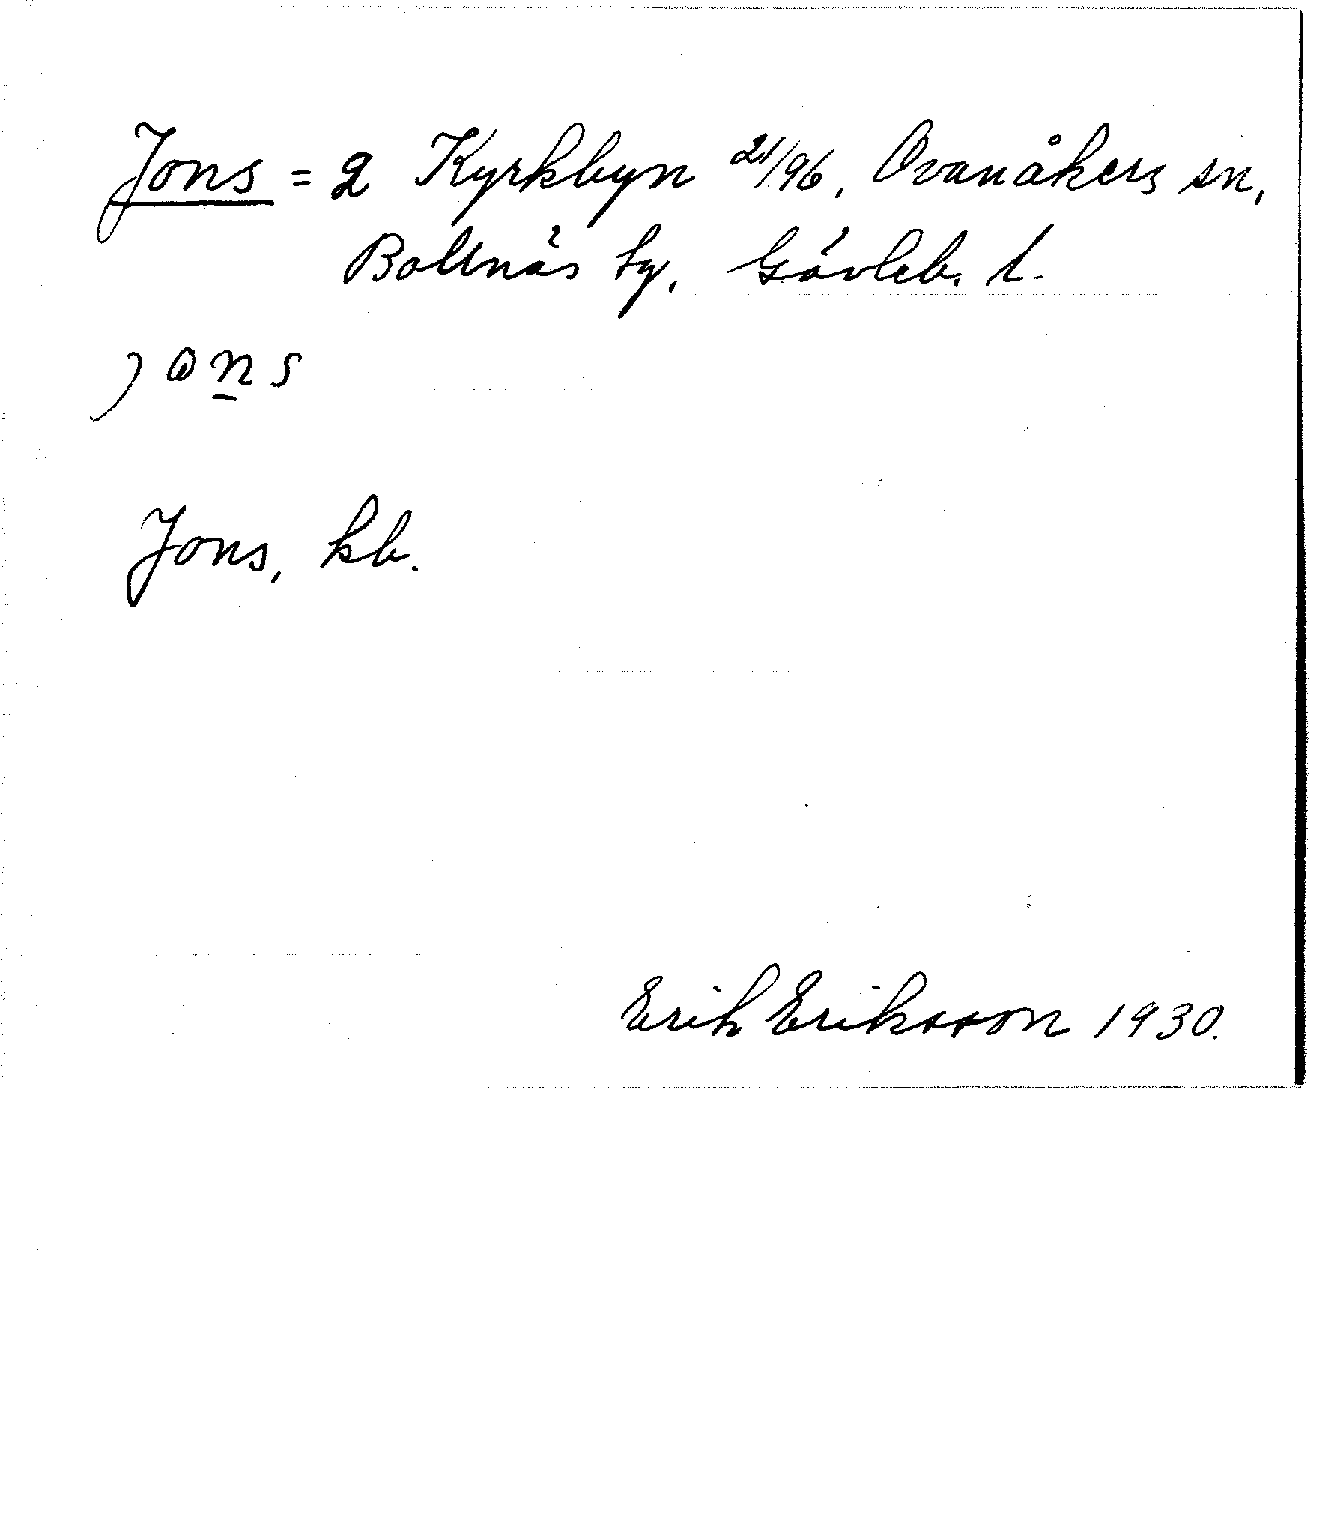 Jons = 2 Kyrkbyn 21/96, Ovanåkers sn,
Bollnäs tg, Gävleb. l.
jons
Jons, kb.
Erik Eriksson 1930.